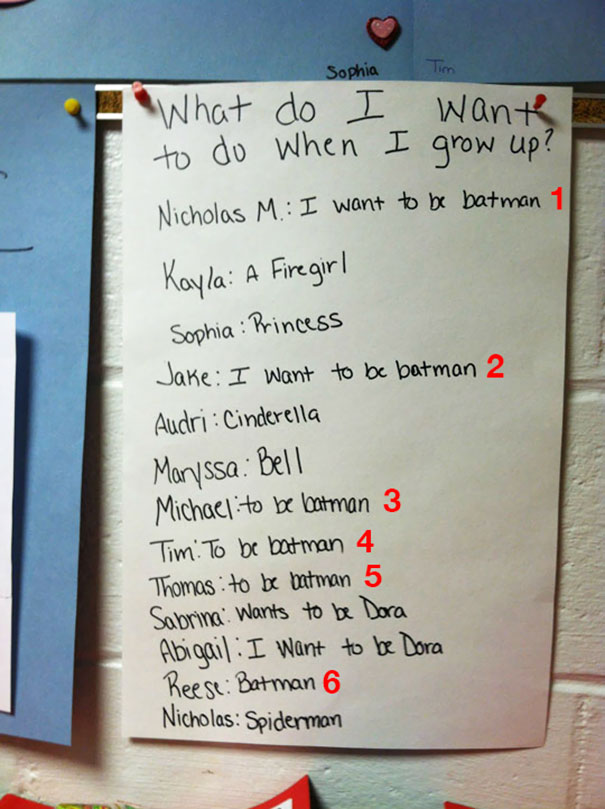 Sophia Tim
What do I want
to do when I grow up?
Nicholas M.: I want to be batman 1
Kayla: A Firegirl
Sophia: Princess
Jake: I want to be batman 2
Audri: Cinderella
Maryssa: Bell
Michael: to be batman 3
Tim: To be batman 4
Thomas: to be batman 5
Sabrina: Wants to be Dora
Abigail: I want to be Dora
Reese: Batman 6
Nicholas: Spiderman